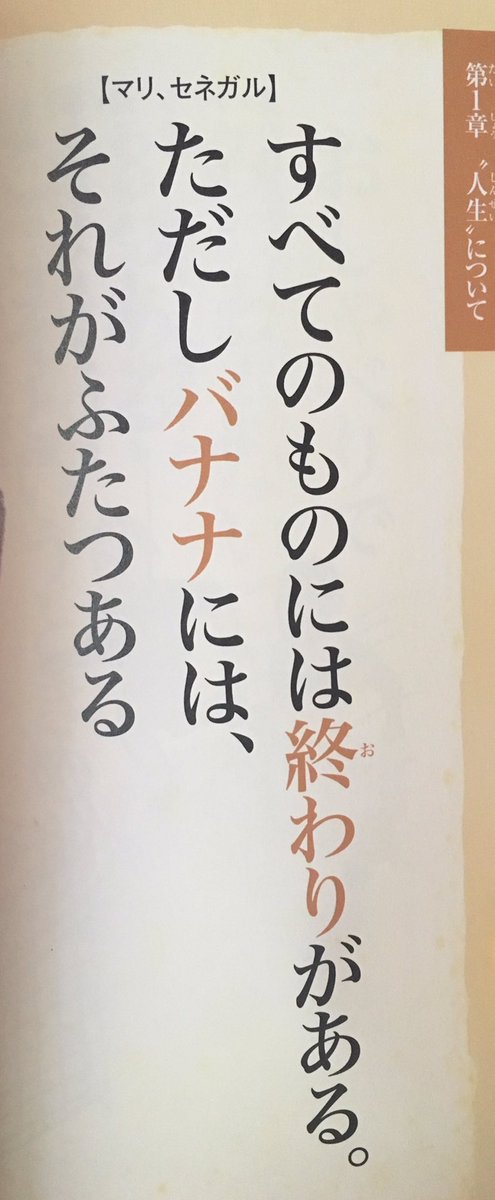 第1章 〝人生〟について
すべてのものには終わりがある。
ただしバナナには、
それがふたつある
【マリ、セネガル】